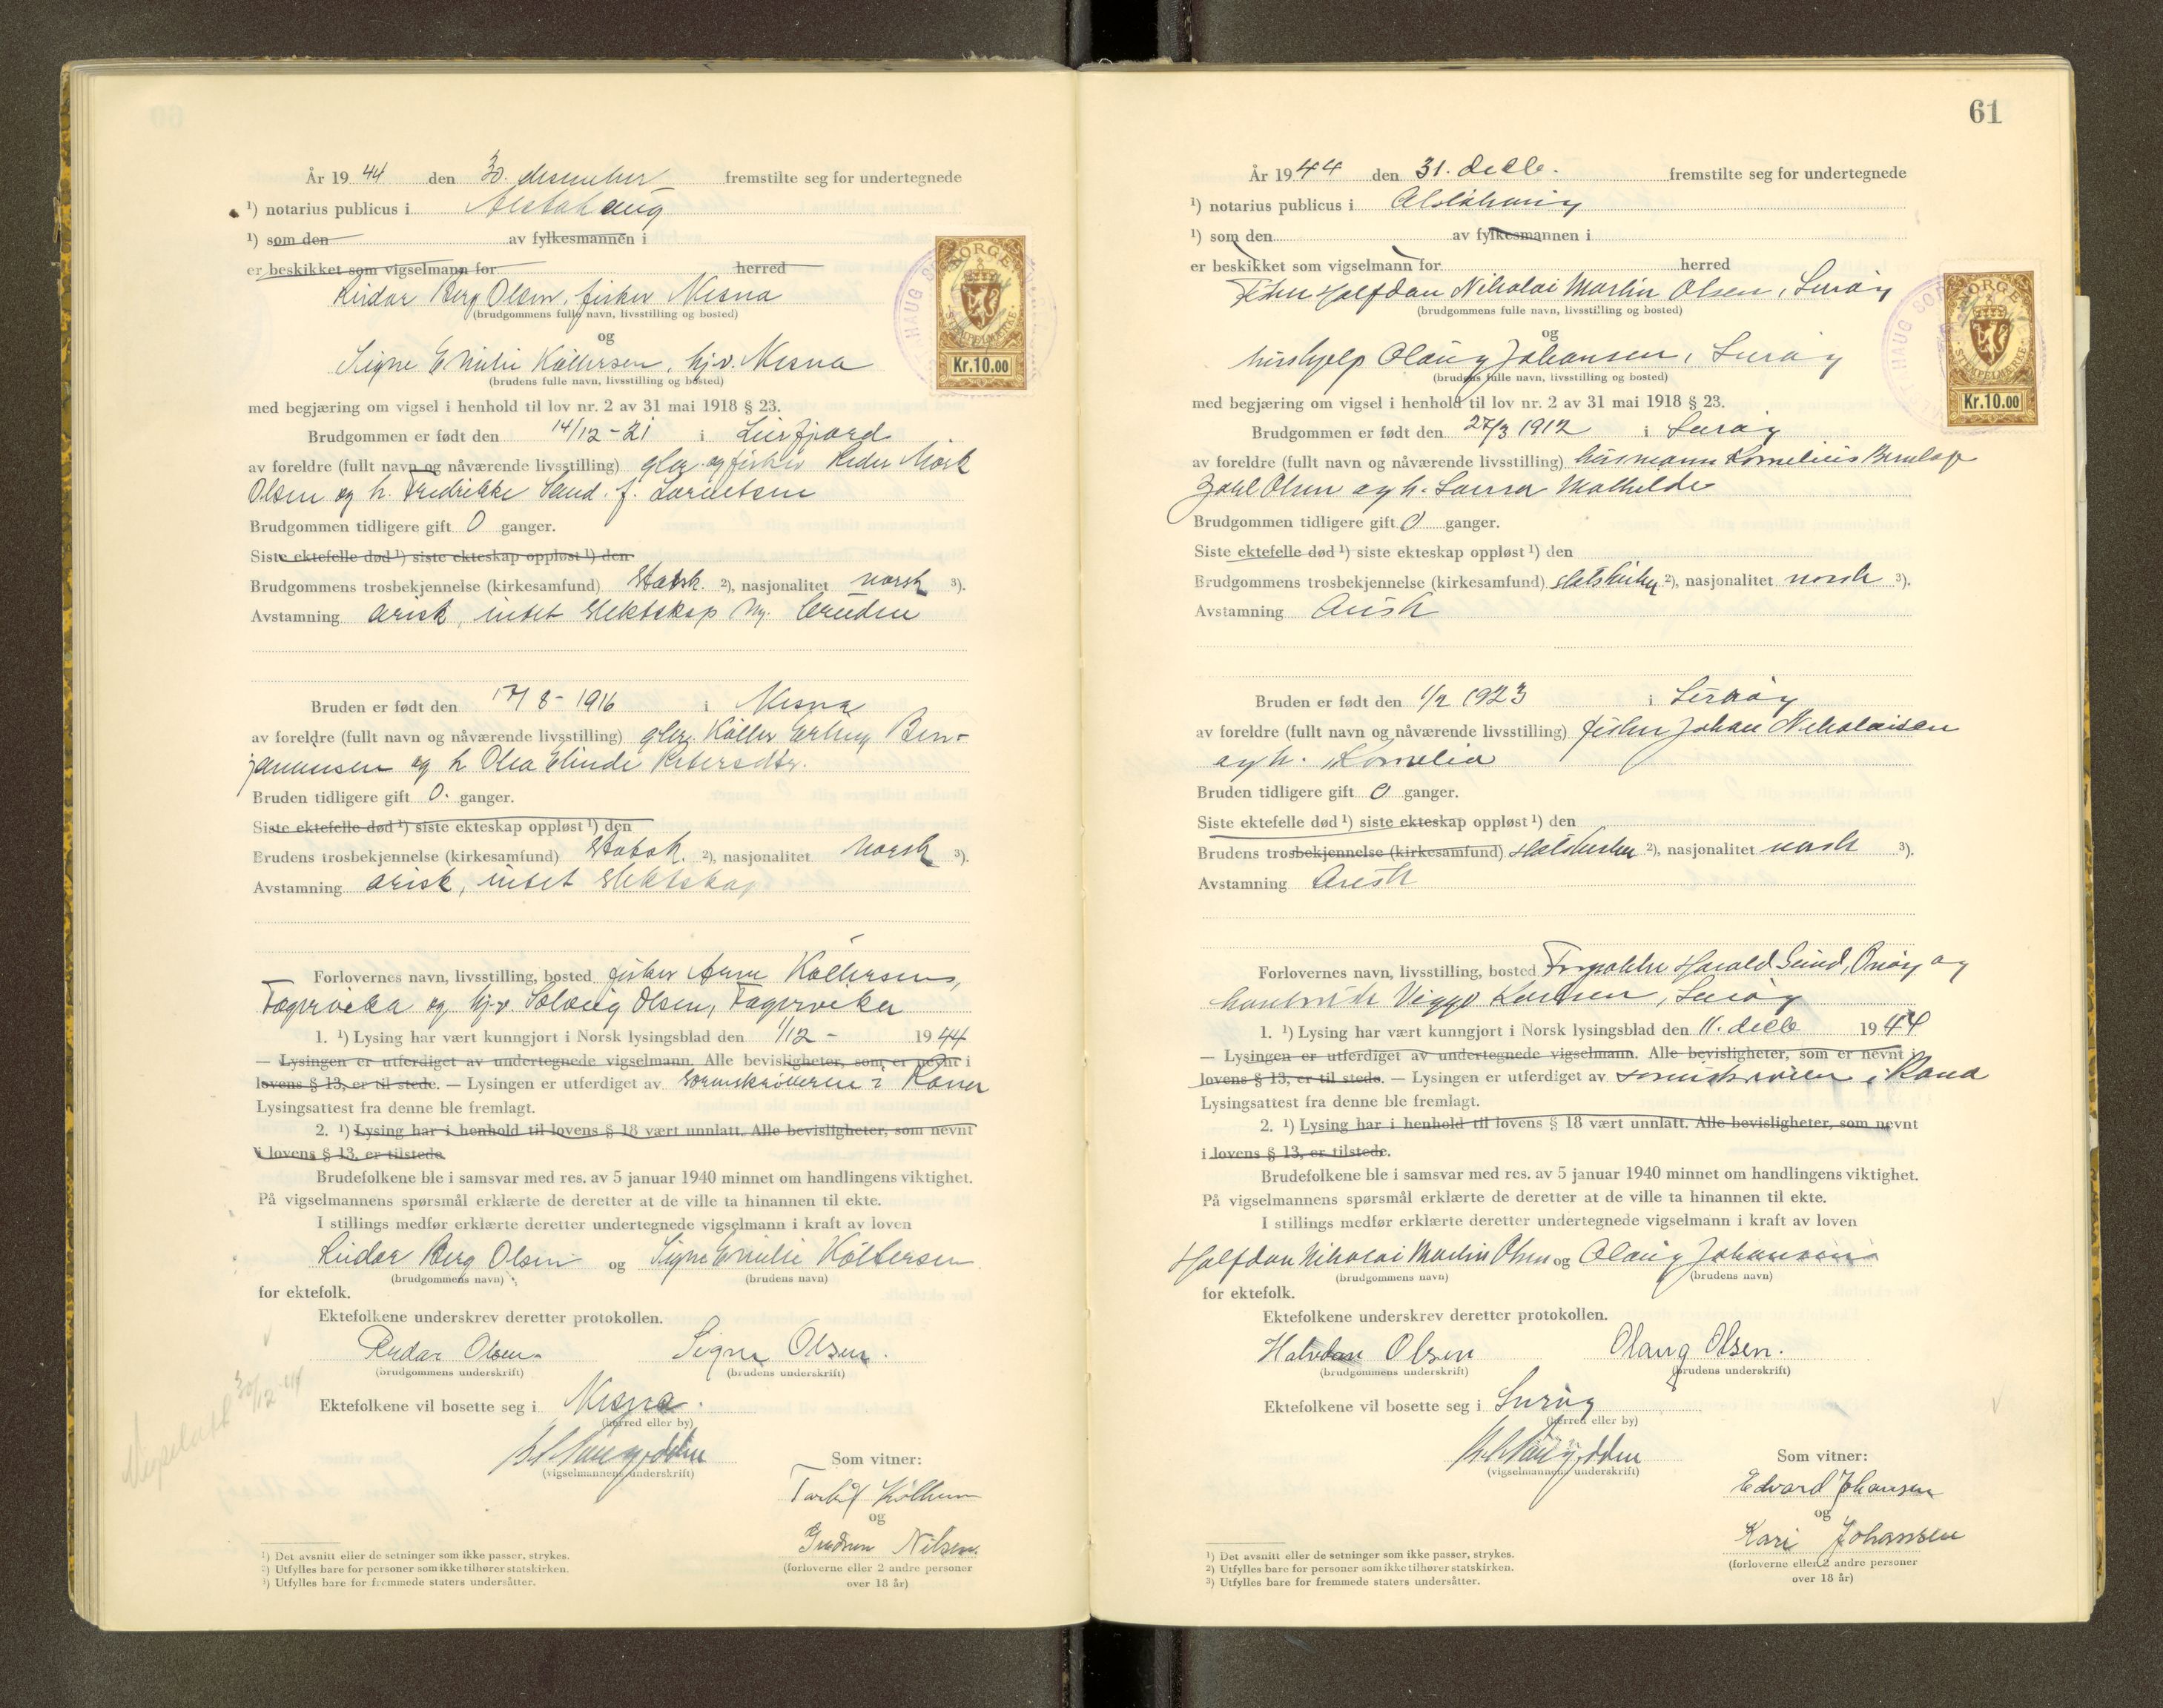 År 1944 den 30. desember fremstilte seg for undertegnede
¹) notarius publicus i Alstahaug
¹) som den av fylkesmannen i
er beskikket som vigselmann for herred
Reidar Berg Olsen, fisker Nesna
(brudgommens fulle navn, livsstilling og bosted)
og
Signe Emilie Kolbersen, hj.v. Nesna
(brudens fulle navn, livsstilling og bosted)
NORGE
STEMPELMERKE
Kr.10.00
med begjæring om vigsel i henhold til lov nr. 2 av 31 mai 1918 § 23.
Brudgommen er født den 14/12-21 i Leirfjord
av foreldre (fullt navn og nåværende livsstilling) og fisker Peder
Olsen og h. Fredrikke f.
Brudgommen tidligere gift 0 ganger.
Siste ektefelle død ¹) siste ekteskap oppløst ¹) den
Brudgommens trosbekjennelse (kirkesamfund) Statsk. ²), nasjonalitet norsk ³).
Avstamning arisk, intet slektskap m. bruden
Bruden er født den 17/8-1916 i Nesna
av foreldre (fullt navn og nåværende livsstilling) Ben-
jaminsen og h Olea Elinde Petersdtr.
Bruden tidligere gift 0. ganger.
Siste ektefelle død ¹) siste ekteskap oppløst ¹) den
Brudens trosbekjennelse (kirkesamfund) Statsk. ²), nasjonalitet Norsk ³).
Avstamning arisk, intet slektskap
Forlovernes navn, livsstilling, bosted fisker Arne
Fagervika og hj.v. Solveig Olsen, Fagervika
1. ¹) Lysing har vært kunngjort i Norsk lysingsblad den 1/12- 1944
— Lysingen er utferdiget av undertegnede vigselmann. Alle bevisligheter, som er nevnt i
lovens § 13, er til stede. — Lysingen er utferdiget av sorenskriveren i Rana
Lysingsattest fra denne ble fremlagt.
2. ¹) Lysing har i henhold til lovens § 18 vært unnlatt. Alle bevisligheter, som nevnt
i lovens § 13, er tilstede.
Brudefolkene ble i samsvar med res. av 5 januar 1940 minnet om handlingens viktighet.
På vigselmannens spørsmål erklærte de deretter at de ville ta hinannen til ekte.
I stillings medfør erklærte deretter undertegnede vigselmann i kraft av loven
Reidar Berg Olsen og Signe Emilie Kolbersen
(brudgommens navn) (brudens navn)
for ektefolk.
Ektefolkene underskrev deretter protokollen.
Reidar Olsen Signe Olsen.
(brudgommens underskrift) (brudens underskrift)
30/12-44
Ektefolkene vil bosette seg i Nesna.
(herred eller by)
(vigselmannens underskrift)
Som vitner:
og
Gudrun Nilsen.
(forloverne eller 2 andre personer
over 18 år)
¹) Det avsnitt eller de setninger som ikke passer, strykes.
²) Utfylles bare for personer som ikke tilhører statskirken.
³) Utfylles bare for fremmede staters undersåtter.
61
År 1944 den 31. desbr. fremstilte seg for undertegnede
¹) notarius publicus i Alstahaug
¹) som den av fylkesmannen i
er beskikket som vigselmann for herred
Fisker Halfdan Nikolai Martin Olsen, Lurøy
(brudgommens fulle navn, livsstilling og bosted)
og
hushjelp Olaug Johansen, Lurøy
(brudens fulle navn, livsstilling og bosted)
NORGE
STEMPELMERKE
Kr.10.00
med begjæring om vigsel i henhold til lov nr. 2 av 31 mai 1918 § 23.
Brudgommen er født den 27/3 1912 i Lurøy
av foreldre (fullt navn og nåværende livsstilling) husmann Kornelius
Zahl Olsen og h. Laura Mathilde
Brudgommen tidligere gift 0 ganger.
Siste ektefelle død ¹) siste ekteskap oppløst ¹) den
Brudgommens trosbekjennelse (kirkesamfund) statskirken ²), nasjonalitet norsk ³).
Avstamning Arisk
Bruden er født den 1/2 1923 i Lurøy
av foreldre (fullt navn og nåværende livsstilling) fisker Johan Nikolaisen
og h. Kornelia
Bruden tidligere gift 0 ganger.
Siste ektefelle død ¹) siste ekteskap oppløst ¹) den
Brudens trosbekjennelse (kirkesamfund) statskirken ²), nasjonalitet norsk ³).
Avstamning Arisk
Forlovernes navn, livsstilling, bosted Harald Sund, Onøy og
Viggo Karlsen, Lurøy
1. ¹) Lysing har vært kunngjort i Norsk lysingsblad den 11. desbr 1944
— Lysingen er utferdiget av undertegnede vigselmann. Alle bevisligheter, som er nevnt i
lovens § 13, er til stede. — Lysingen er utferdiget av sorenskriveren i Rana
Lysingsattest fra denne ble fremlagt.
2. ¹) Lysing har i henhold til lovens § 18 vært unnlatt. Alle bevisligheter, som nevnt
i lovens § 13, er tilstede.
Brudefolkene ble i samsvar med res. av 5 januar 1940 minnet om handlingens viktighet.
På vigselmannens spørsmål erklærte de deretter at de ville ta hinannen til ekte.
I stillings medfør erklærte deretter undertegnede vigselmann i kraft av loven
Halfdan Nikolai Martin Olsen og Olaug Johansen
(brudgommens navn) (brudens navn)
for ektefolk.
Ektefolkene underskrev deretter protokollen.
Halvdan Olsen Olaug Olsen.
(brudgommens underskrift) (brudens underskrift)
Ektefolkene vil bosette seg i Lurøy
(herred eller by)
(vigselmannens underskrift)
Som vitner:
Edvard Johansen
og
Kari Johanssen
(forloverne eller 2 andre personer
over 18 år)
¹) Det avsnitt eller de setninger som ikke passer, strykes.
²) Utfylles bare for personer som ikke tilhører statskirken.
³) Utfylles bare for fremmede staters undersåtter.